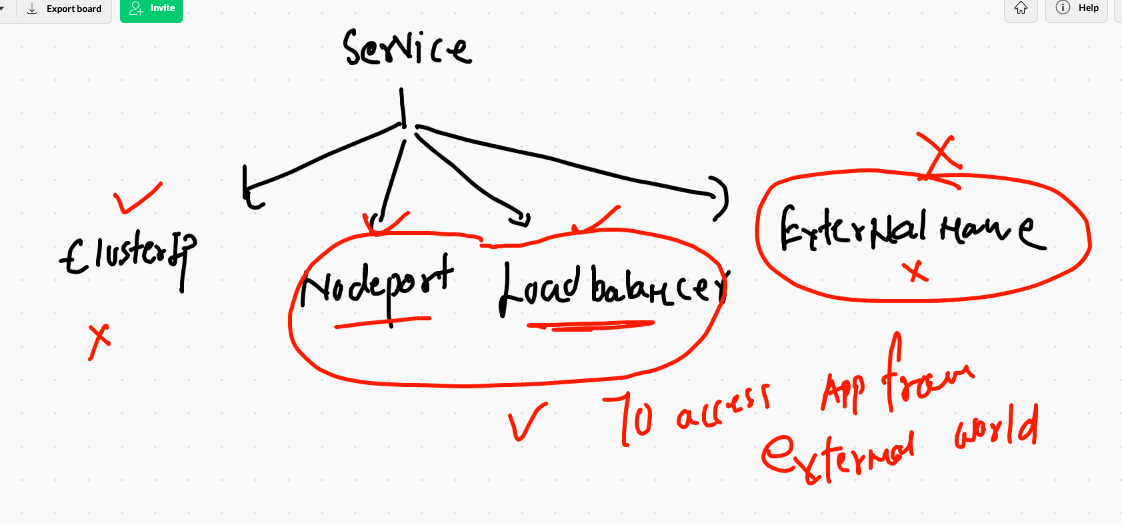 Export board
Invite
Help
Service
ClusterIP
Nodeport
Loadbalancer
External Name
To access App from
external world